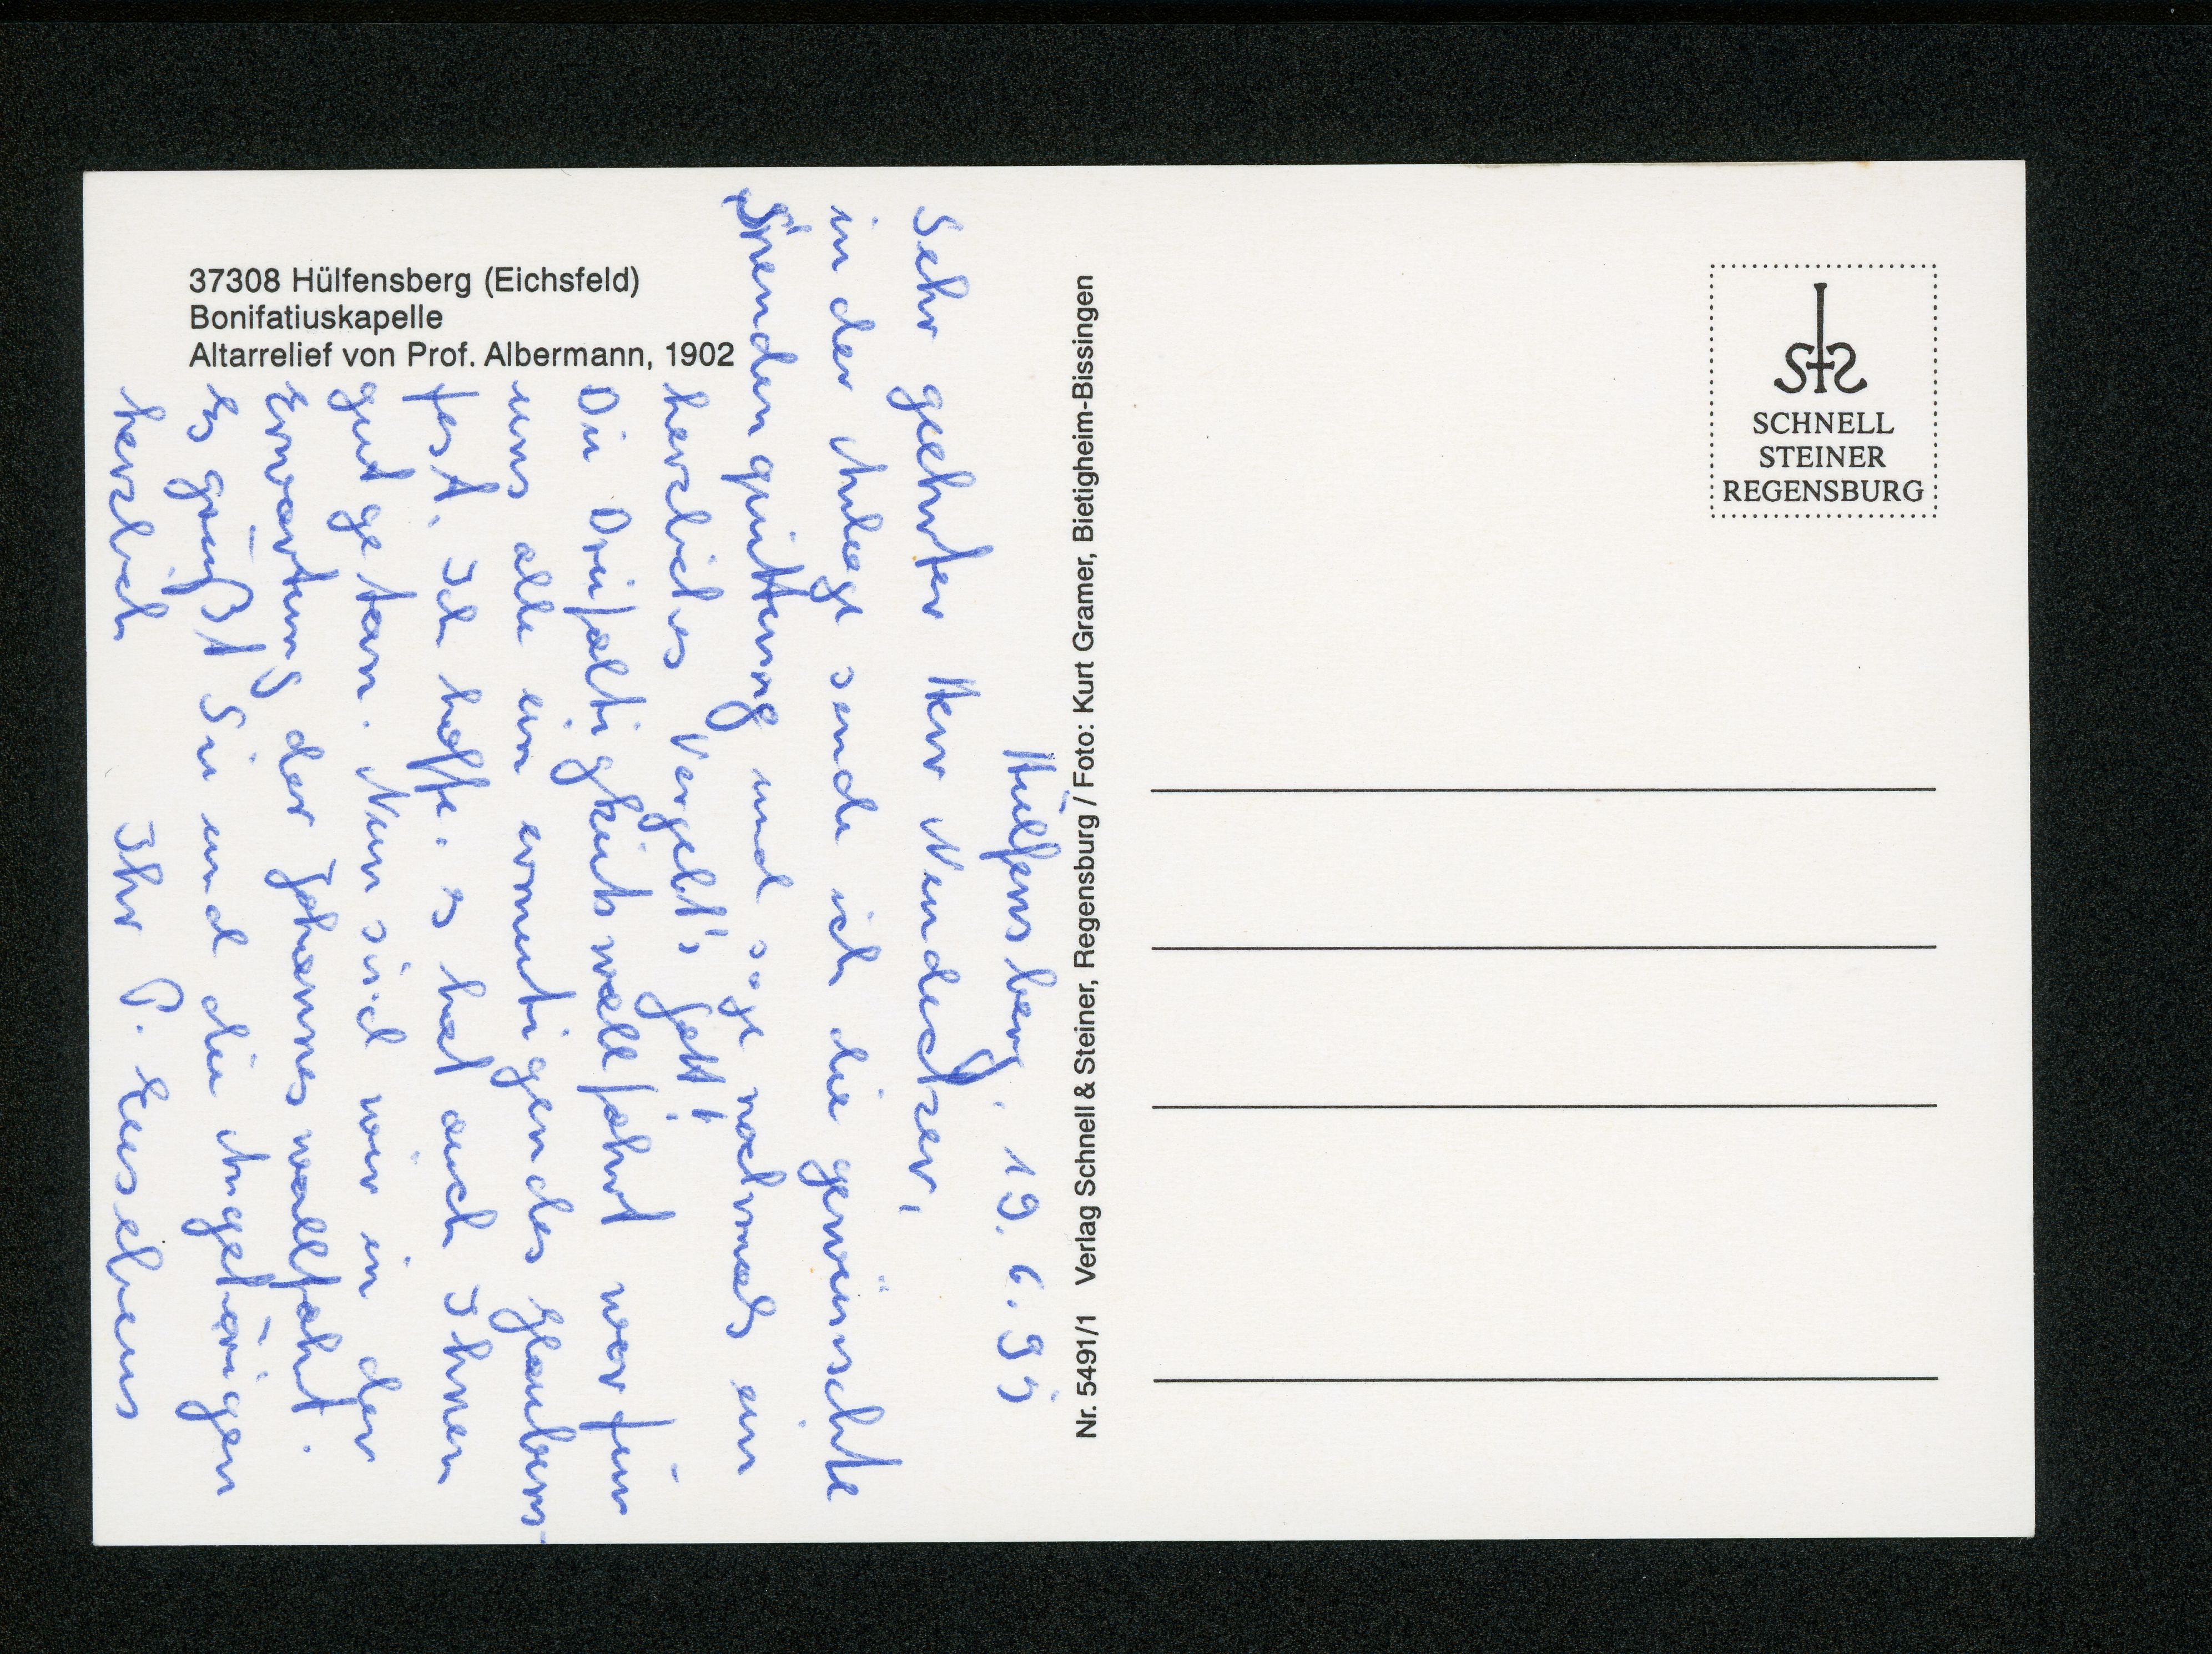 37308 Hülfensberg (Eichsfeld)
Bonifatiuskapelle
Altarrelief von Prof. Albermann, 1902
Hülfensberg, 19. 6. 95
Sehr geehrter Herr
in der Anlage sende ich die gewünschte
Spendenquittung und sage nochmals ein
herzliches Vergelt's Gott!
Die Dreifaltigkeitswallfahrt war für
uns alle ein ermutigendes Glaubens-
fest. Ich hoffe, es hat auch Ihnen
gut getan. Nun sind wir in der
Erwartung der Johanneswallfahrt.
Es grüßt Sie und die Angehörigen
herzlich Ihr P. Eusebius
Nr. 5491/1 Verlag Schnell & Steiner, Regensburg / Foto: Kurt Gramer, Bietigheim-Bissingen
SCHNELL
STEINER
REGENSBURG